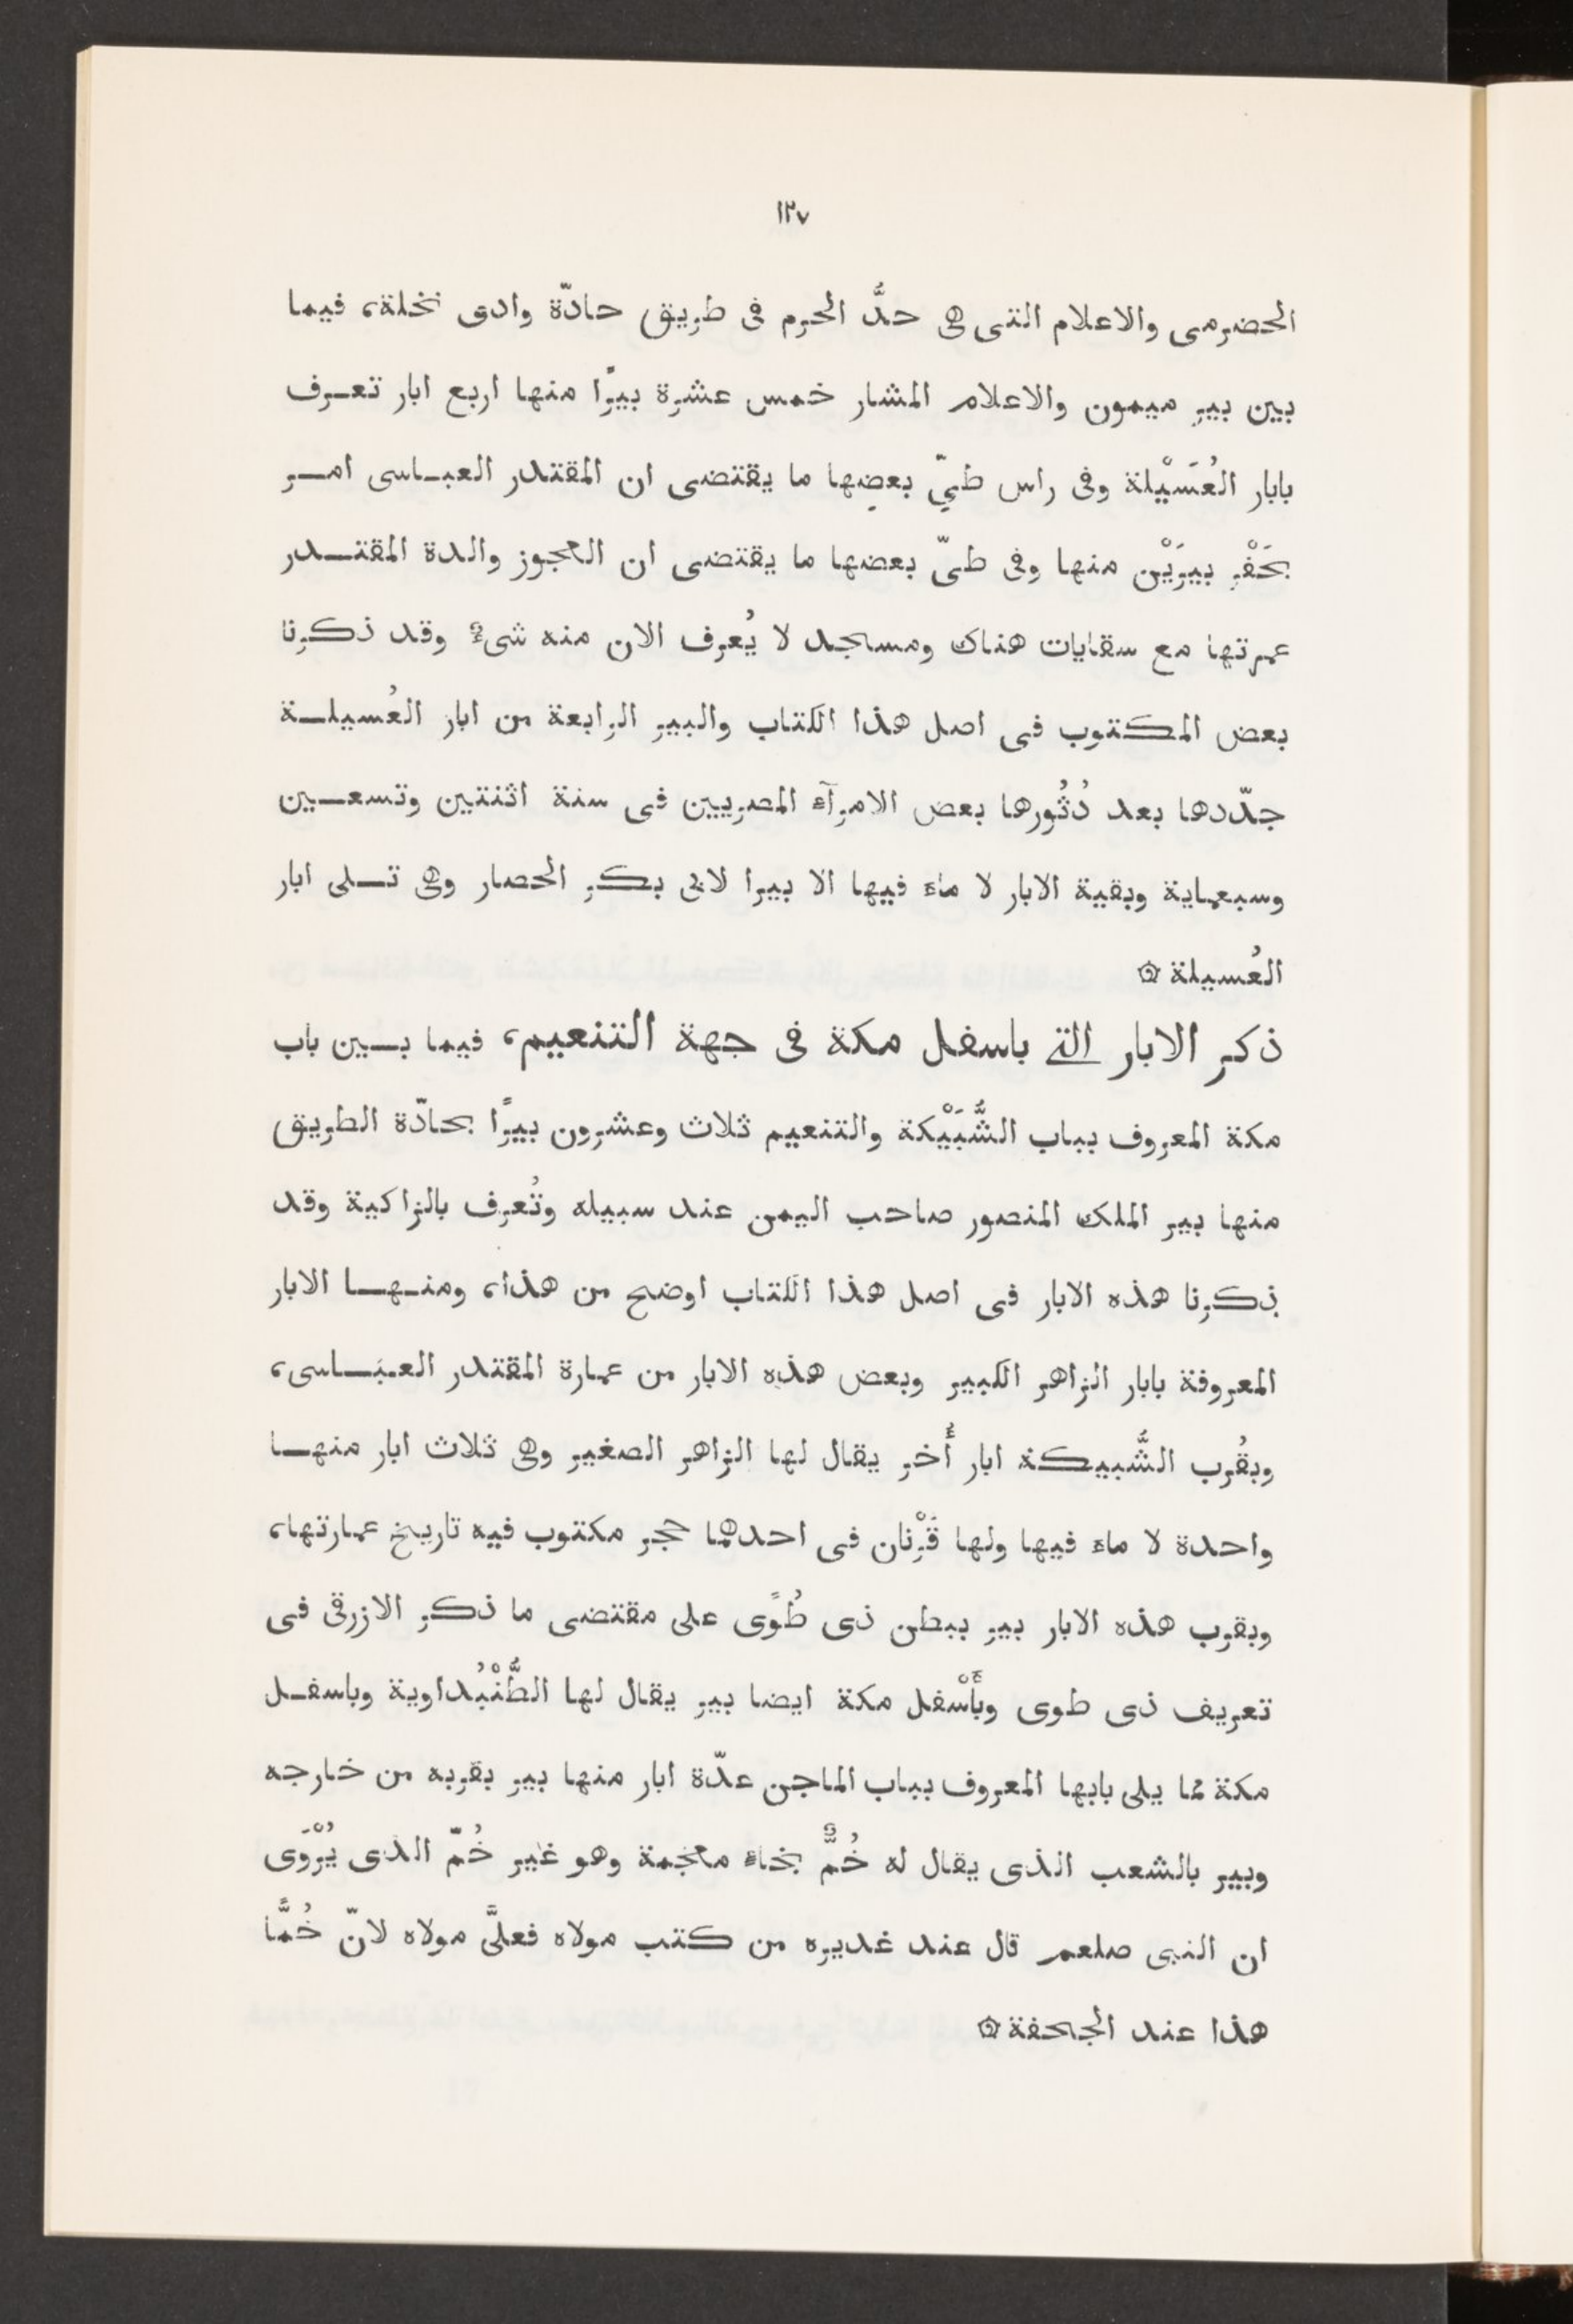 ١٢٧
الحضرمى والاعلام التى هى حدُّ الحرم فى طريق جادّة وادى نخلة، فيما
بين بير ميمون والاعلام المشار خمس عشرة بيرًا منها اربع ابار تعرف
بابار العُسَيْلة وفى راس طىّ بعضها ما يقتضى ان المقتدر العباسى امر
بحَفْرِ بيرَيْن منها وفى طىّ بعضها ما يقتضى ان العجوز والدة المقتدر
عمرتها مع سقايات هناك ومسجد لا يُعرف الان منه شىءٌ وقد ذكرنا
بعض المكتوب فى اصل هذا الكتاب والبير الرابعة من ابار العُسيلة
جدّدها بعد دُثُورها بعض الامرآء المصريين فى سنة اثنتين وتسعين
وسبعماية وبقية الابار لا ماء فيها الا بيرا لابى بكر الحصار وهى تلى ابار
العُسيلة ۞
ذكر الابار التى باسفل مكة فى جهة التنعيم، فيما بين باب
مكة المعروف بباب الشُّبَيْكة والتنعيم ثلاث وعشرون بيرًا بجادّة الطريق
منها بير الملك المنصور صاحب اليمن عند سبيله وتُعرف بالزاكية وقد
ذكرنا هذه الابار فى اصل هذا الكتاب اوضح من هذا، ومنها الابار
المعروفة بابار الزاهر الكبير وبعض هذه الابار من عمارة المقتدر العباسى،
وبقُرب الشُّبيكة ابار أُخر يقال لها الزاهر الصغير وهى ثلاث ابار منها
واحدة لا ماء فيها ولها قَرْنان فى احدهما حجر مكتوب فيه تاريخ عمارتها،
وبقرب هذه الابار بير ببطن ذى طُوًى على مقتضى ما ذكر الازرقى فى
تعريف ذى طوى وبأَسْفل مكة ايضا بير يقال لها الطُّنْبُداوية وباسفل
مكة مما يلى بابها المعروف بباب الماجن عدّة ابار منها بير بقربه من خارجه
وبير بالشعب الذى يقال له خُمٌّ بخاء معجمة وهو غير خُمّ الذى يُرْوَى
ان النبى صلعم قال عند غديره من كنت مولاه فعلىَّ مولاه لانّ خُمًّا
هذا عند الجحفة ۞